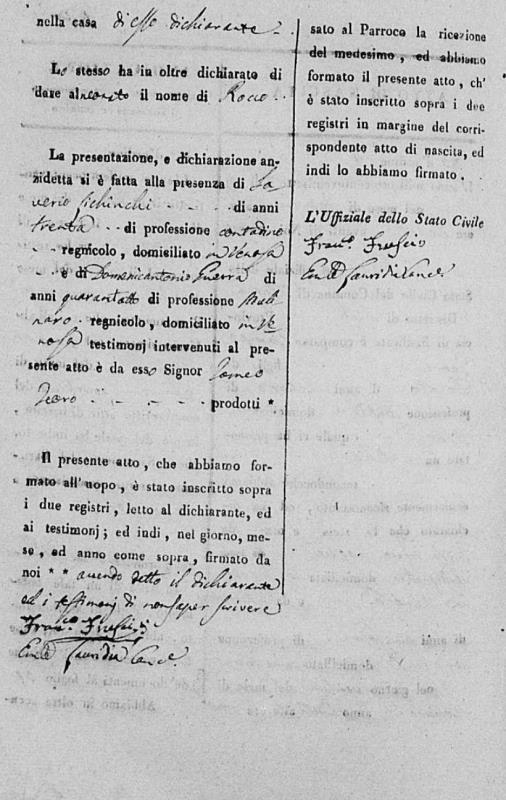 nella casa di esso dichiarante
Lo stesso ha in oltre dichiarato di
dare al neonato il nome di Rocco
La presentazione, e dichiarazione an-
zidetta si è fatta alla presenza di Sa
verio di anni
trenta di professione contadino
regnicolo, domiciliato in Venosa
e di Domenicantonio Guerra di
anni quarantotto di professione Moli
naro regnicolo, domiciliato in Ve
nosa testimonj intervenuti al pre-
sente atto è da esso Signor
prodotti *
Il presente atto, che abbiamo for-
mato all'uopo, è stato inscritto sopra
i due registri, letto al dichiarante, ed
ai testimonj; ed indi, nel giorno, me-
se, ed anno come sopra, firmato da
noi * * avendo detto il dichiarante
ed i testimonj di non saper scrivere
Fran.
Canc.
sato al Parroco la ricezione
del medesimo, ed abbiamo
formato il presente atto, ch'
è stato inscritto sopra i due
registri in margine del corri-
spondente atto di nascita, ed
indi lo abbiamo firmato.
L'Uffiziale dello Stato Civile
Fran.
Canc.